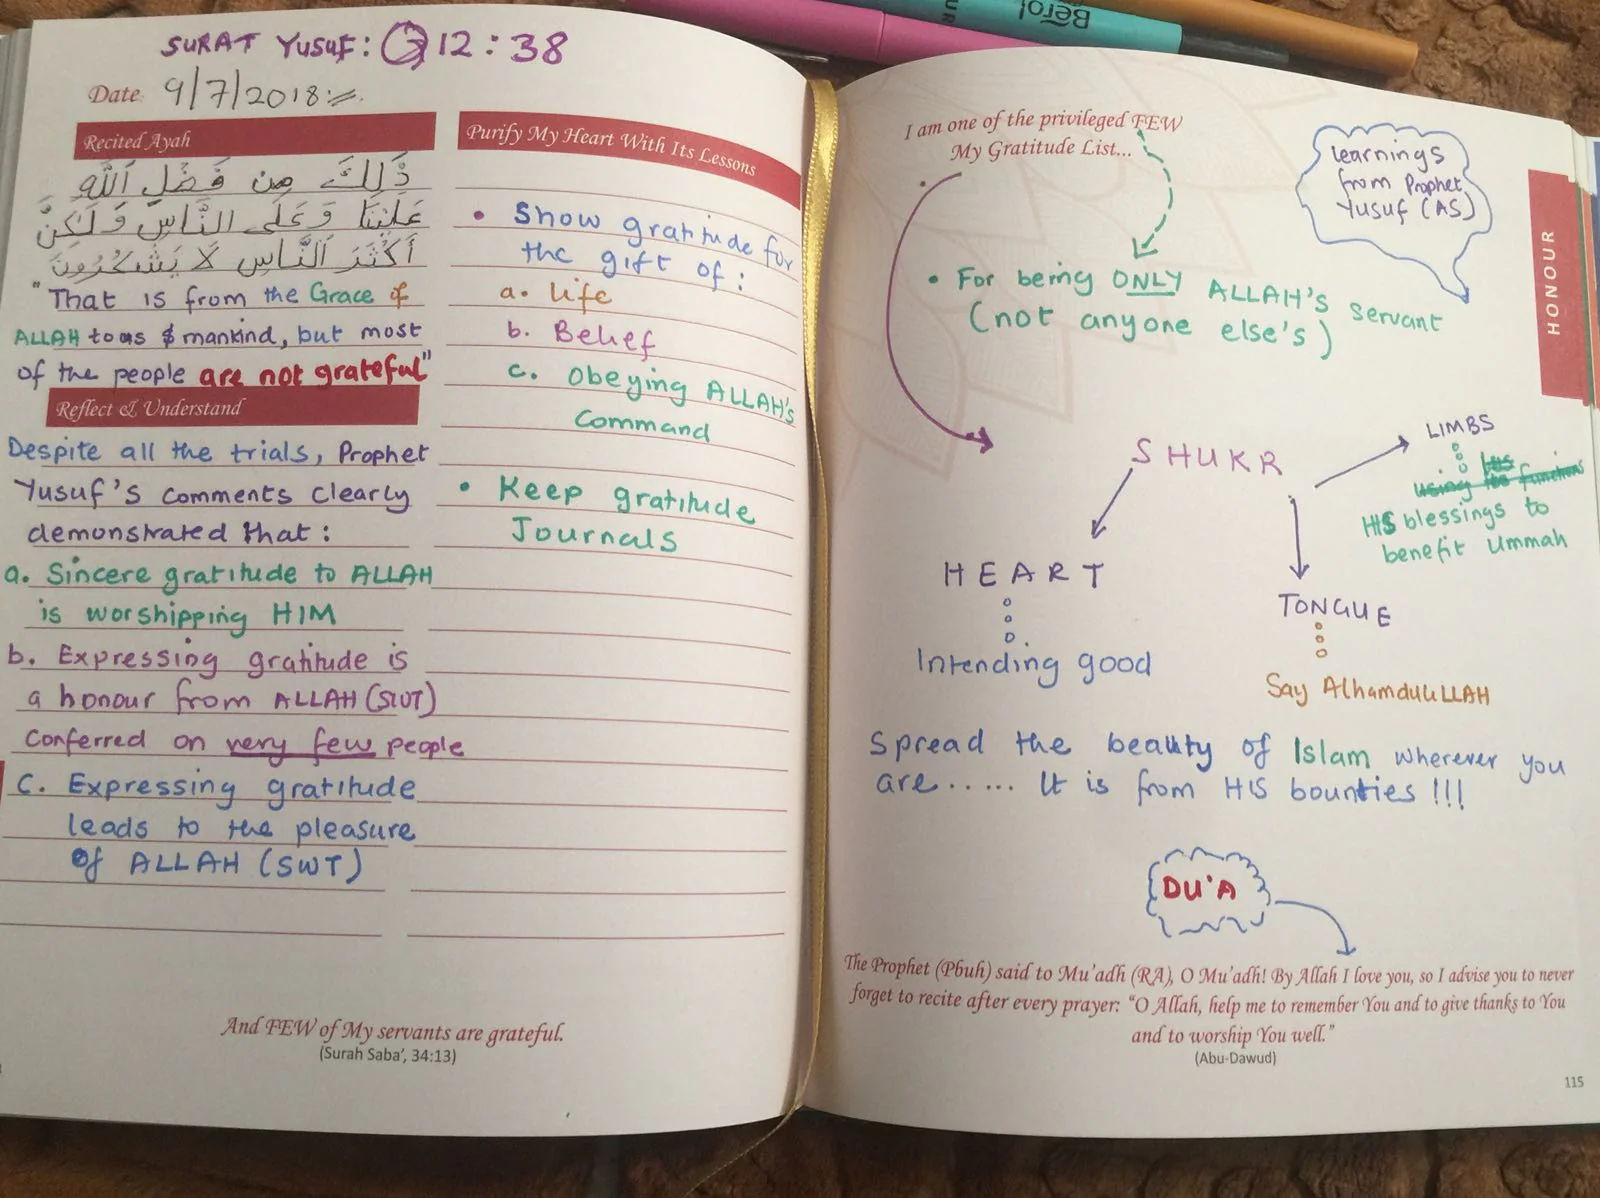 SURAT YUSUF: 12:38
Date: 9/7/2018
Recited Ayah
ذَٰلِكَ مِن فَضْلِ ٱللَّهِ
عَلَيْنَا وَعَلَى النَّاسِ وَلَٰكِنَّ
أَكْثَرَ ٱلنَّاسِ لَا يَشْكُرُونَ
"That is from the Grace of
ALLAH to us & mankind, but most
of the people are not grateful"
Reflect & Understand
Despite all the trials, Prophet
Yusuf's comments clearly
demonstrated that:
a. Sincere gratitude to ALLAH
is worshipping HIM
b. Expressing gratitude is
a honour from ALLAH (SWT)
conferred on very few people
C. Expressing gratitude
leads to the pleasure
of ALLAH (SWT)
Purify My Heart With Its Lessons
• Show gratitude for
the gift of:
a. life
b. Belief
c. Obeying ALLAH's
Command
• Keep gratitude
Journals
And FEW of My servants are grateful.
(Surah Saba', 34:13)
Berol
I am one of the privileged FEW
My Gratitude List...
learnings
from Prophet
Yusuf (AS)
HONOUR
• For being ONLY ALLAH's servant
(not anyone else's)
SHUKR
LIMBS
using its functions
HIS blessings to
benefit Ummah
HEART
Intending good
TONGUE
Say AlhamduLLAH
Spread the beauty of Islam wherever you
are...... It is from HIS bounties!!!
DU'A
The Prophet (Pbuh) said to Mu'adh (RA), O Mu'adh! By Allah I love you, so I advise you to never
forget to recite after every prayer: "O Allah, help me to remember You and to give thanks to You
and to worship You well."
(Abu-Dawud)
115